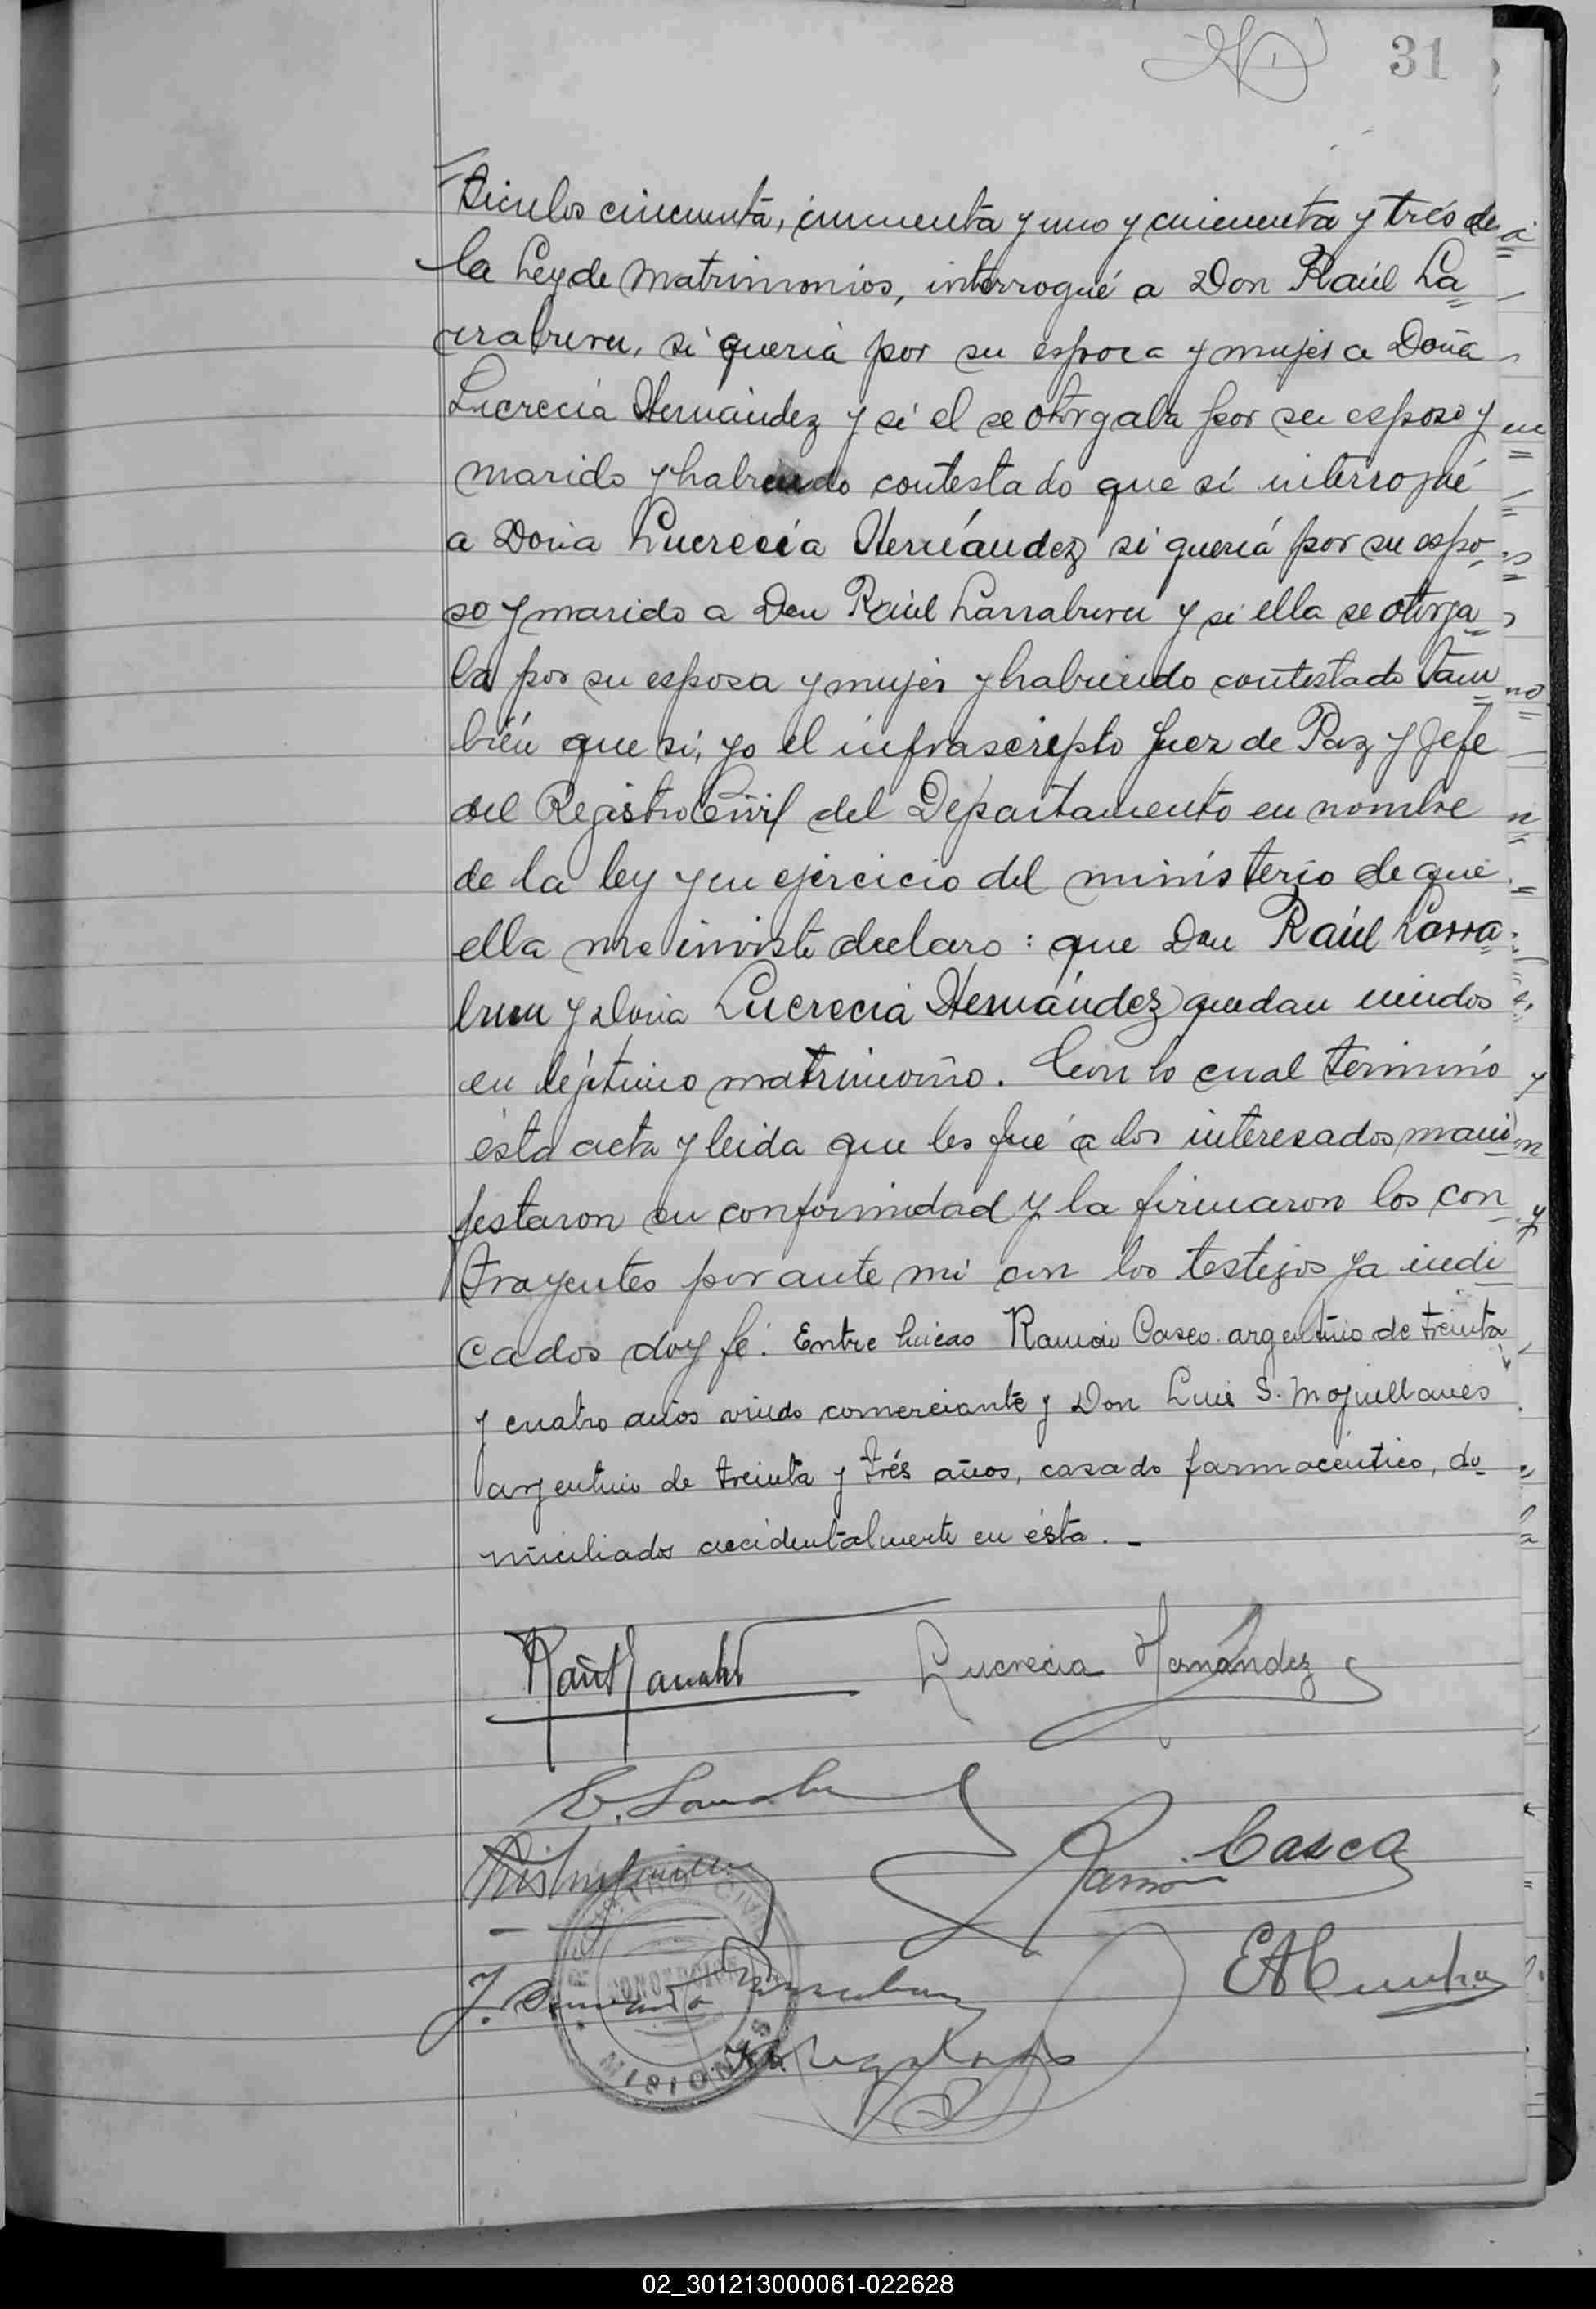 31
ticulos cincuenta, cincuenta y uno y cincuenta y trés de
la Ley de Matrimonios, interrogué a Don Raúl La
rraburu, si queria por su esposa y mujer a Doña
Lucrecia Hernández y si el se otorgaba por su esposo y
marido y habiendo contestado que sí interrogué
a Doña Lucrecia Hernández si queria por su espo
so y marido a Don Raúl Larraburu y si ella se otorga
ba por su esposa y mujer y habiendo contestado tam
bién que si, yo el infrascripto Juez de Paz y Jefe
del Registro Civil del Departamento en nombre
de la ley y en ejercicio del ministerio de que
ella me inviste declaro: que Don Raúl Larra
buru y Doña Lucrecia Hernández quedan unidos
en lejitimo matrimonio. Con lo cual terminó
ésta acta y leida que les fué a los interesados mani
festaron su conformidad y la firmaron los con
trayentes por ante mi con los testigos ya indi
cados doy fé. Entre lineas Ramón Casco argentino de treinta
y cuatro años viudo comerciante y Don Luis S. Moguillanes
argentino de treinta y trés años, casado farmacéutico, do
miciliados accidentalmente en ésta. -
Raúl Larrabu
Lucrecia Hernández
Ramón Casco
REGISTRO CIVIL
CONCEPCION
MISIONES
02_301213000061-022628